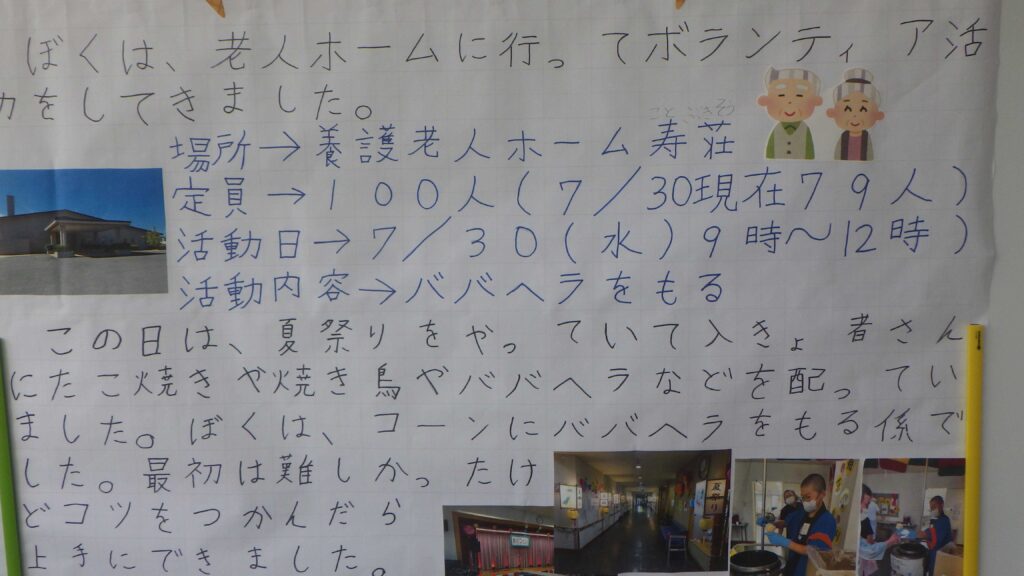 ぼくは、老人ホームに行ってボランティア活
力をしてきました。
ことぶきそう
場所→養護老人ホーム寿荘
定員→100人(7/30現在79人)
活動日→7/30(水)9時〜12時)
活動内容→ババヘラをもる
この日は、夏祭りをやっていて入きょ者さん
にたこ焼きや焼き鳥やババヘラなどを配ってい
ました。ぼくは、コーンにババヘラをもる係で
した。最初は難しかったけ
どコツをつかんだら
上手にできました。
夏祭り